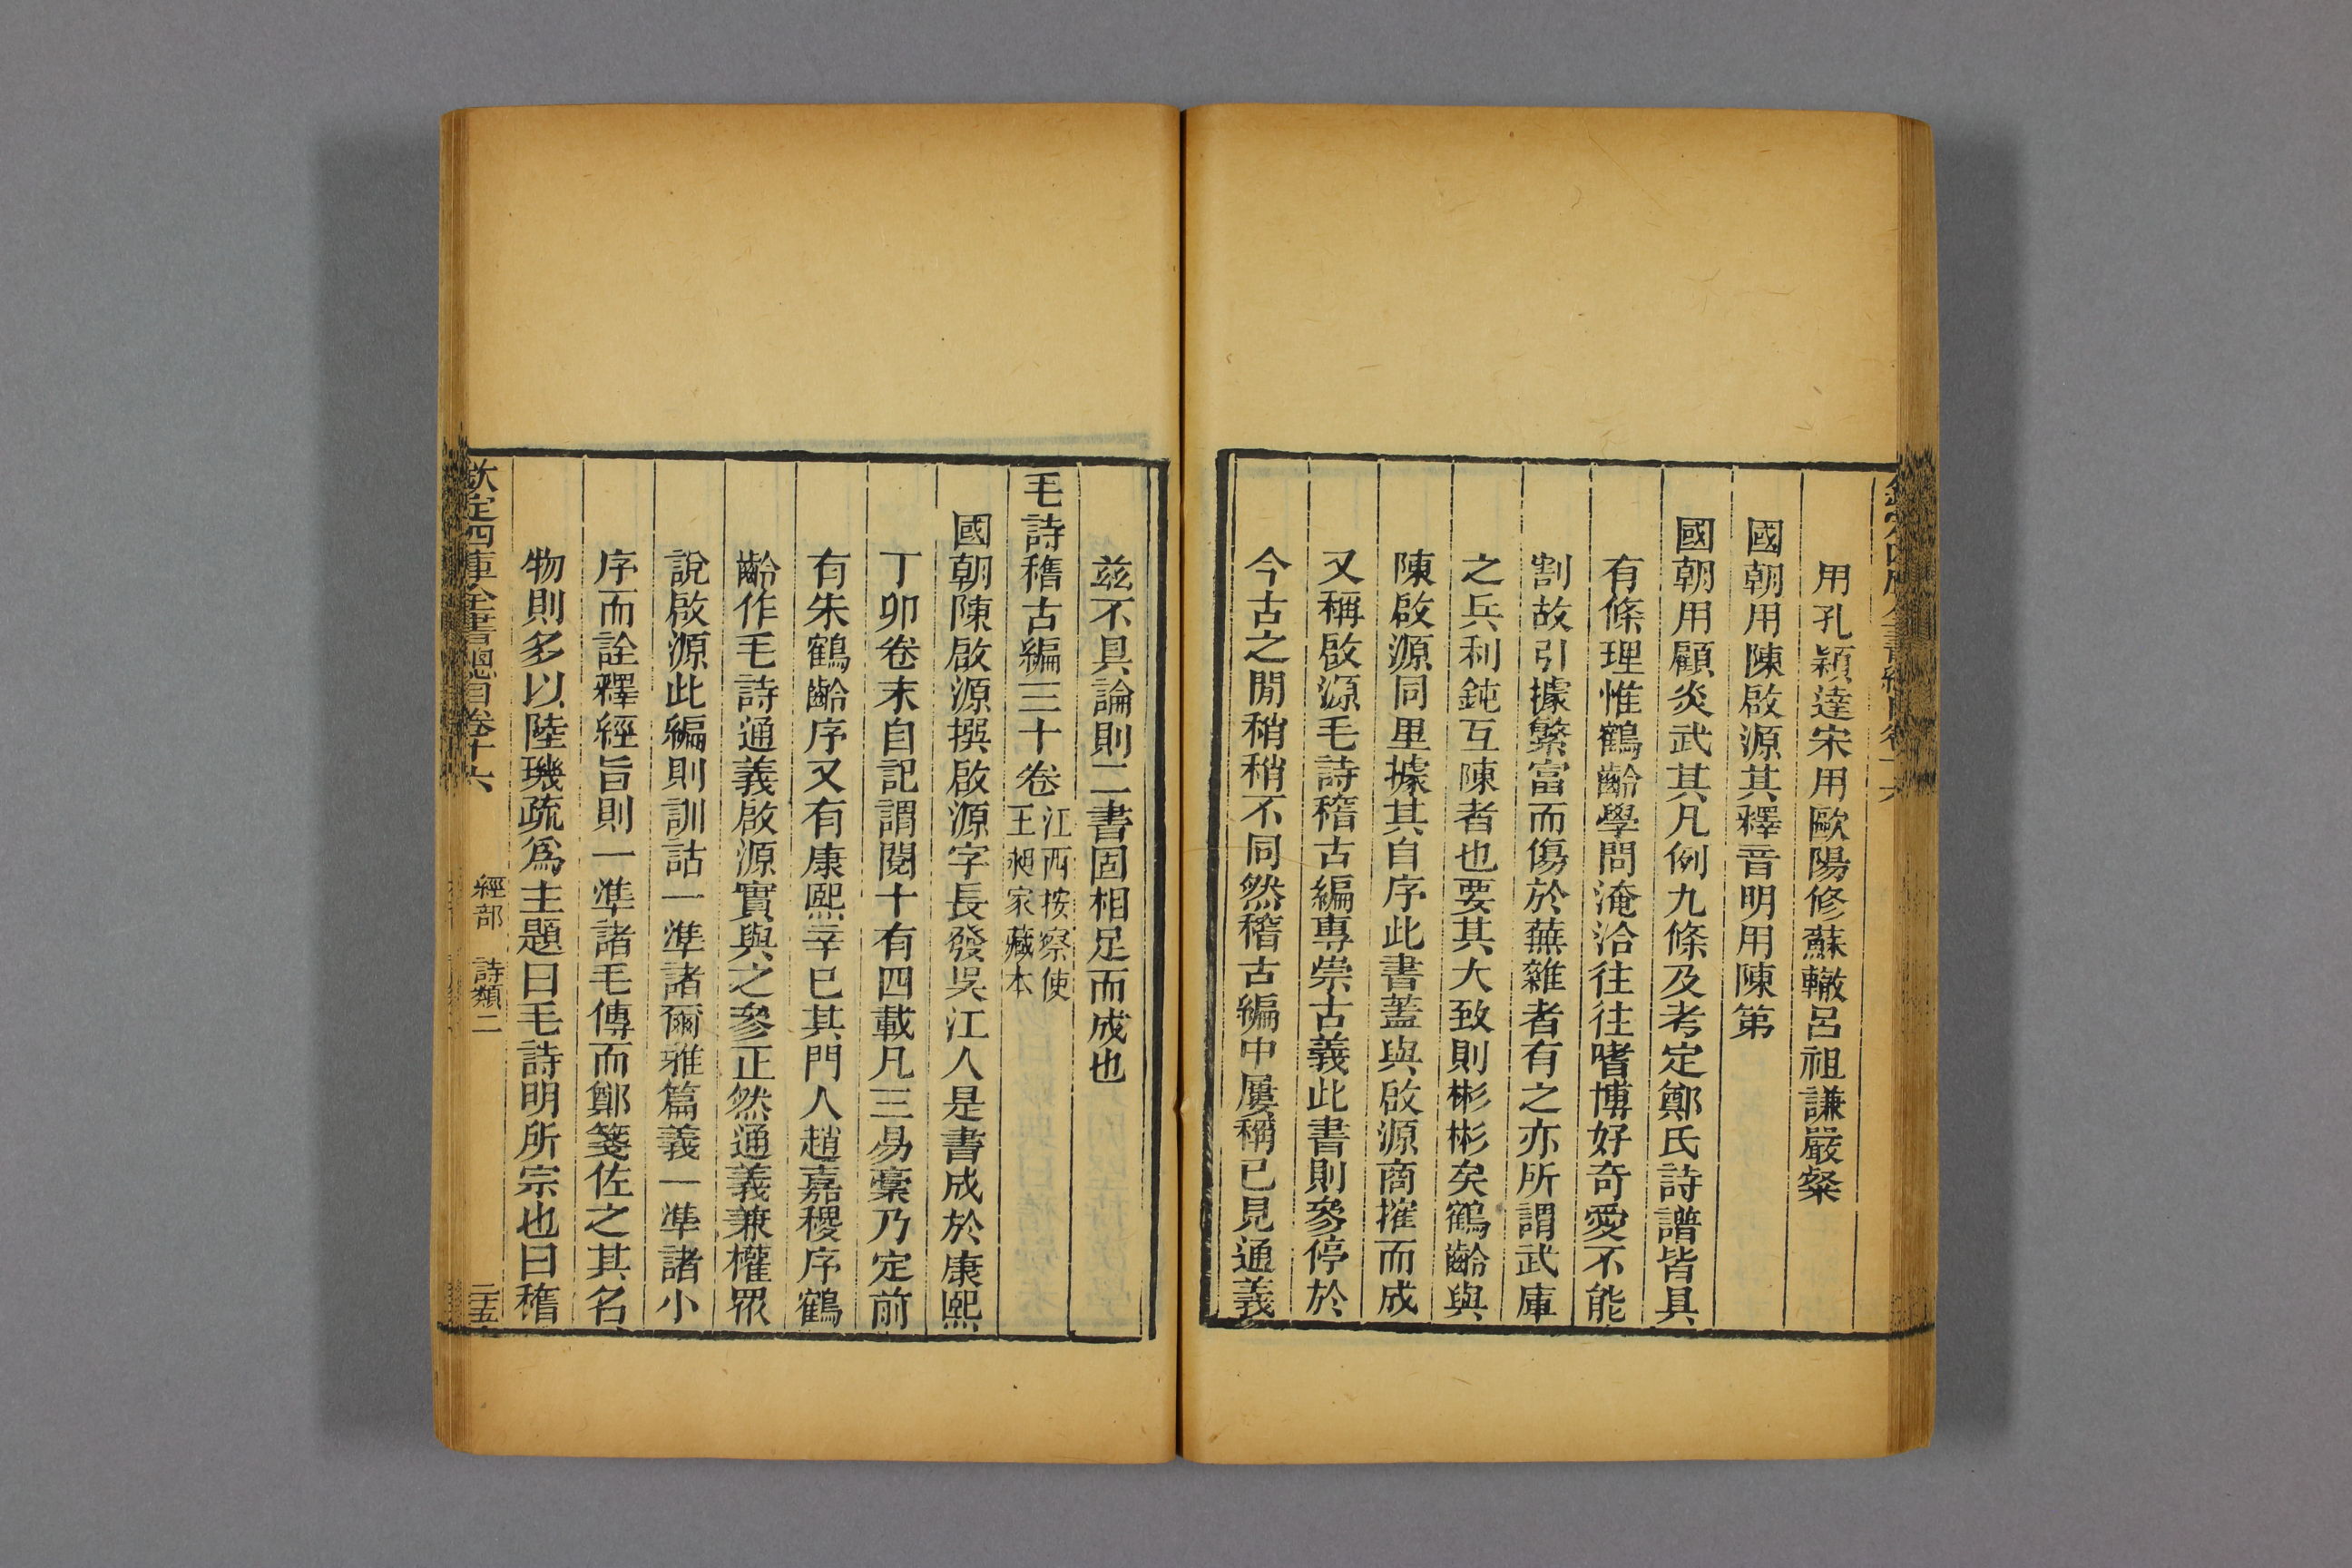 用孔穎達宋用歐陽修蘇轍呂祖謙嚴粲
國朝用陳啟源其釋音明用陳第
國朝用顧炎武其凡例九條及考定鄭氏詩譜皆具
有條理惟鶴齡學問淹洽往往嗜博好奇愛不能
割故引據繁富而傷於蕪雜者有之亦所謂武庫
之兵利鈍互陳者也要其大致則彬彬矣鶴齡與
陳啟源同里據其自序此書蓋與啟源商搉而成
又稱啟源毛詩稽古編專崇古義此書則參停於
今古之閒稍稍不同然稽古編中屢稱已見通義
茲不具論則二書固相足而成也
毛詩稽古編三十卷 江西按察使
王昶家藏本
國朝陳啟源撰啟源字長發吳江人是書成於康熙
丁卯卷末自記謂閱十有四載凡三易藁乃定前
有朱鶴齡序又有康熙辛巳其門人趙嘉稷序鶴
齡作毛詩通義啟源實與之參正然通義兼權眾
說啟源此編則訓詁一準諸爾雅篇義一準諸小
序而詮釋經旨則一準諸毛傳而鄭箋佐之其名
物則多以陸璣疏爲主題曰毛詩明所宗也曰稽
欽定四庫全書總目卷十六
經部 詩類二
二十五